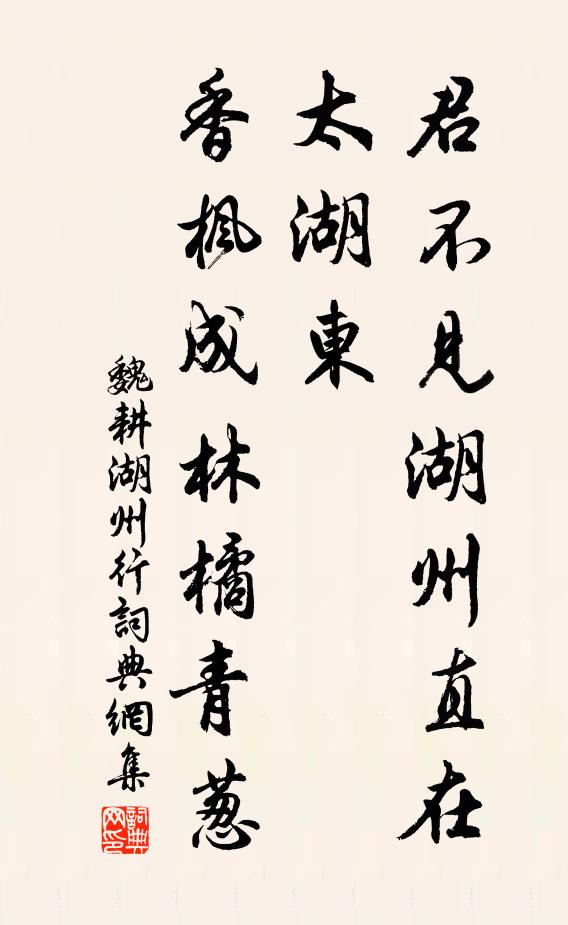 君不見湖州直在
太湖東
香楓成林橘青葱
魏耕湖州行詞典網集
詞典網印